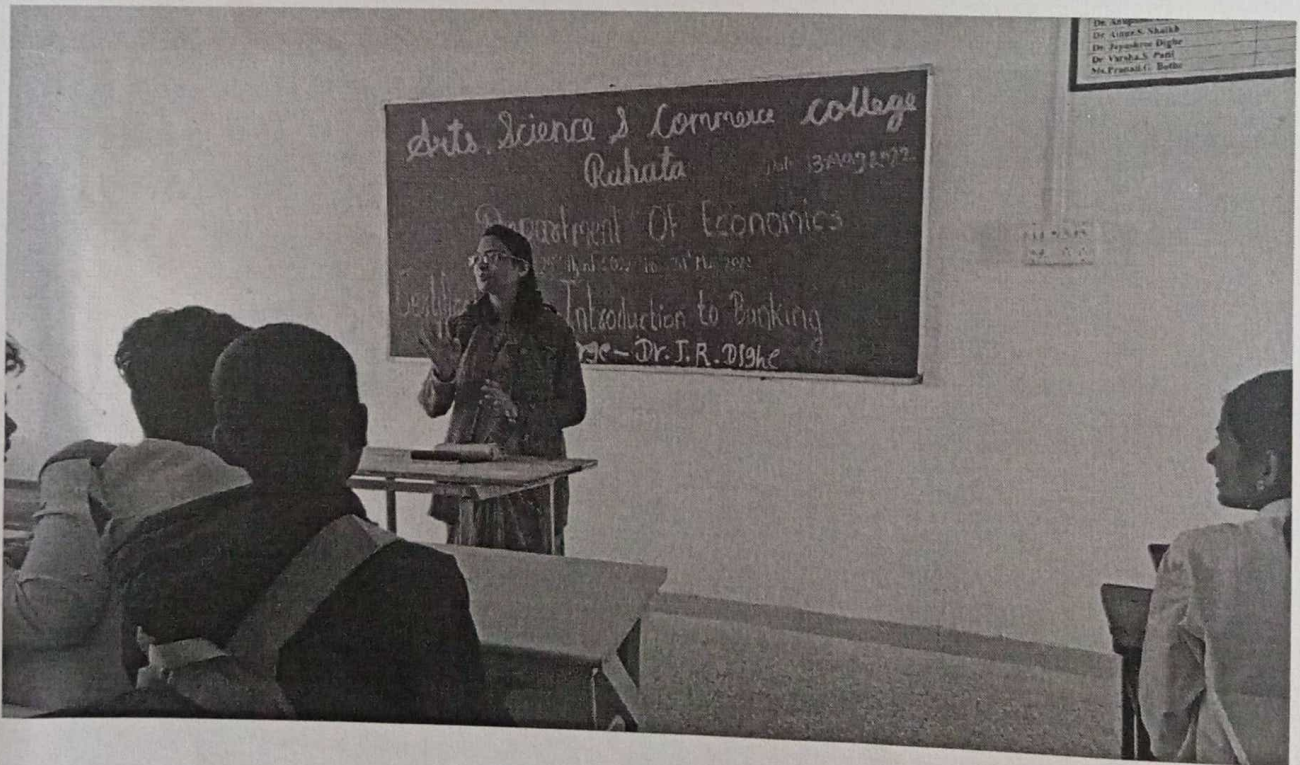 Arts, Science & Commerce college
Rahata
13 May 2022
Department Of Economics
Introduction to Banking
Dr. J. R. Dighe
Dr. Ainur.S. Shaikh
Dr. Jayashree Dighe
Dr. Varsha.S. Patil